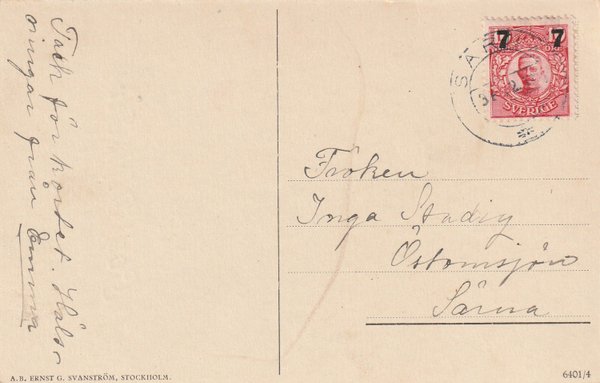 Tack för kortet. Häls-
ningar från Emma
7 7
SVERIGE
SÄR
Fröken
Inga Stadig
Östomsjön
Särna
A. B. ERNST G. SVANSTRÖM, STOCKHOLM.
6401/4